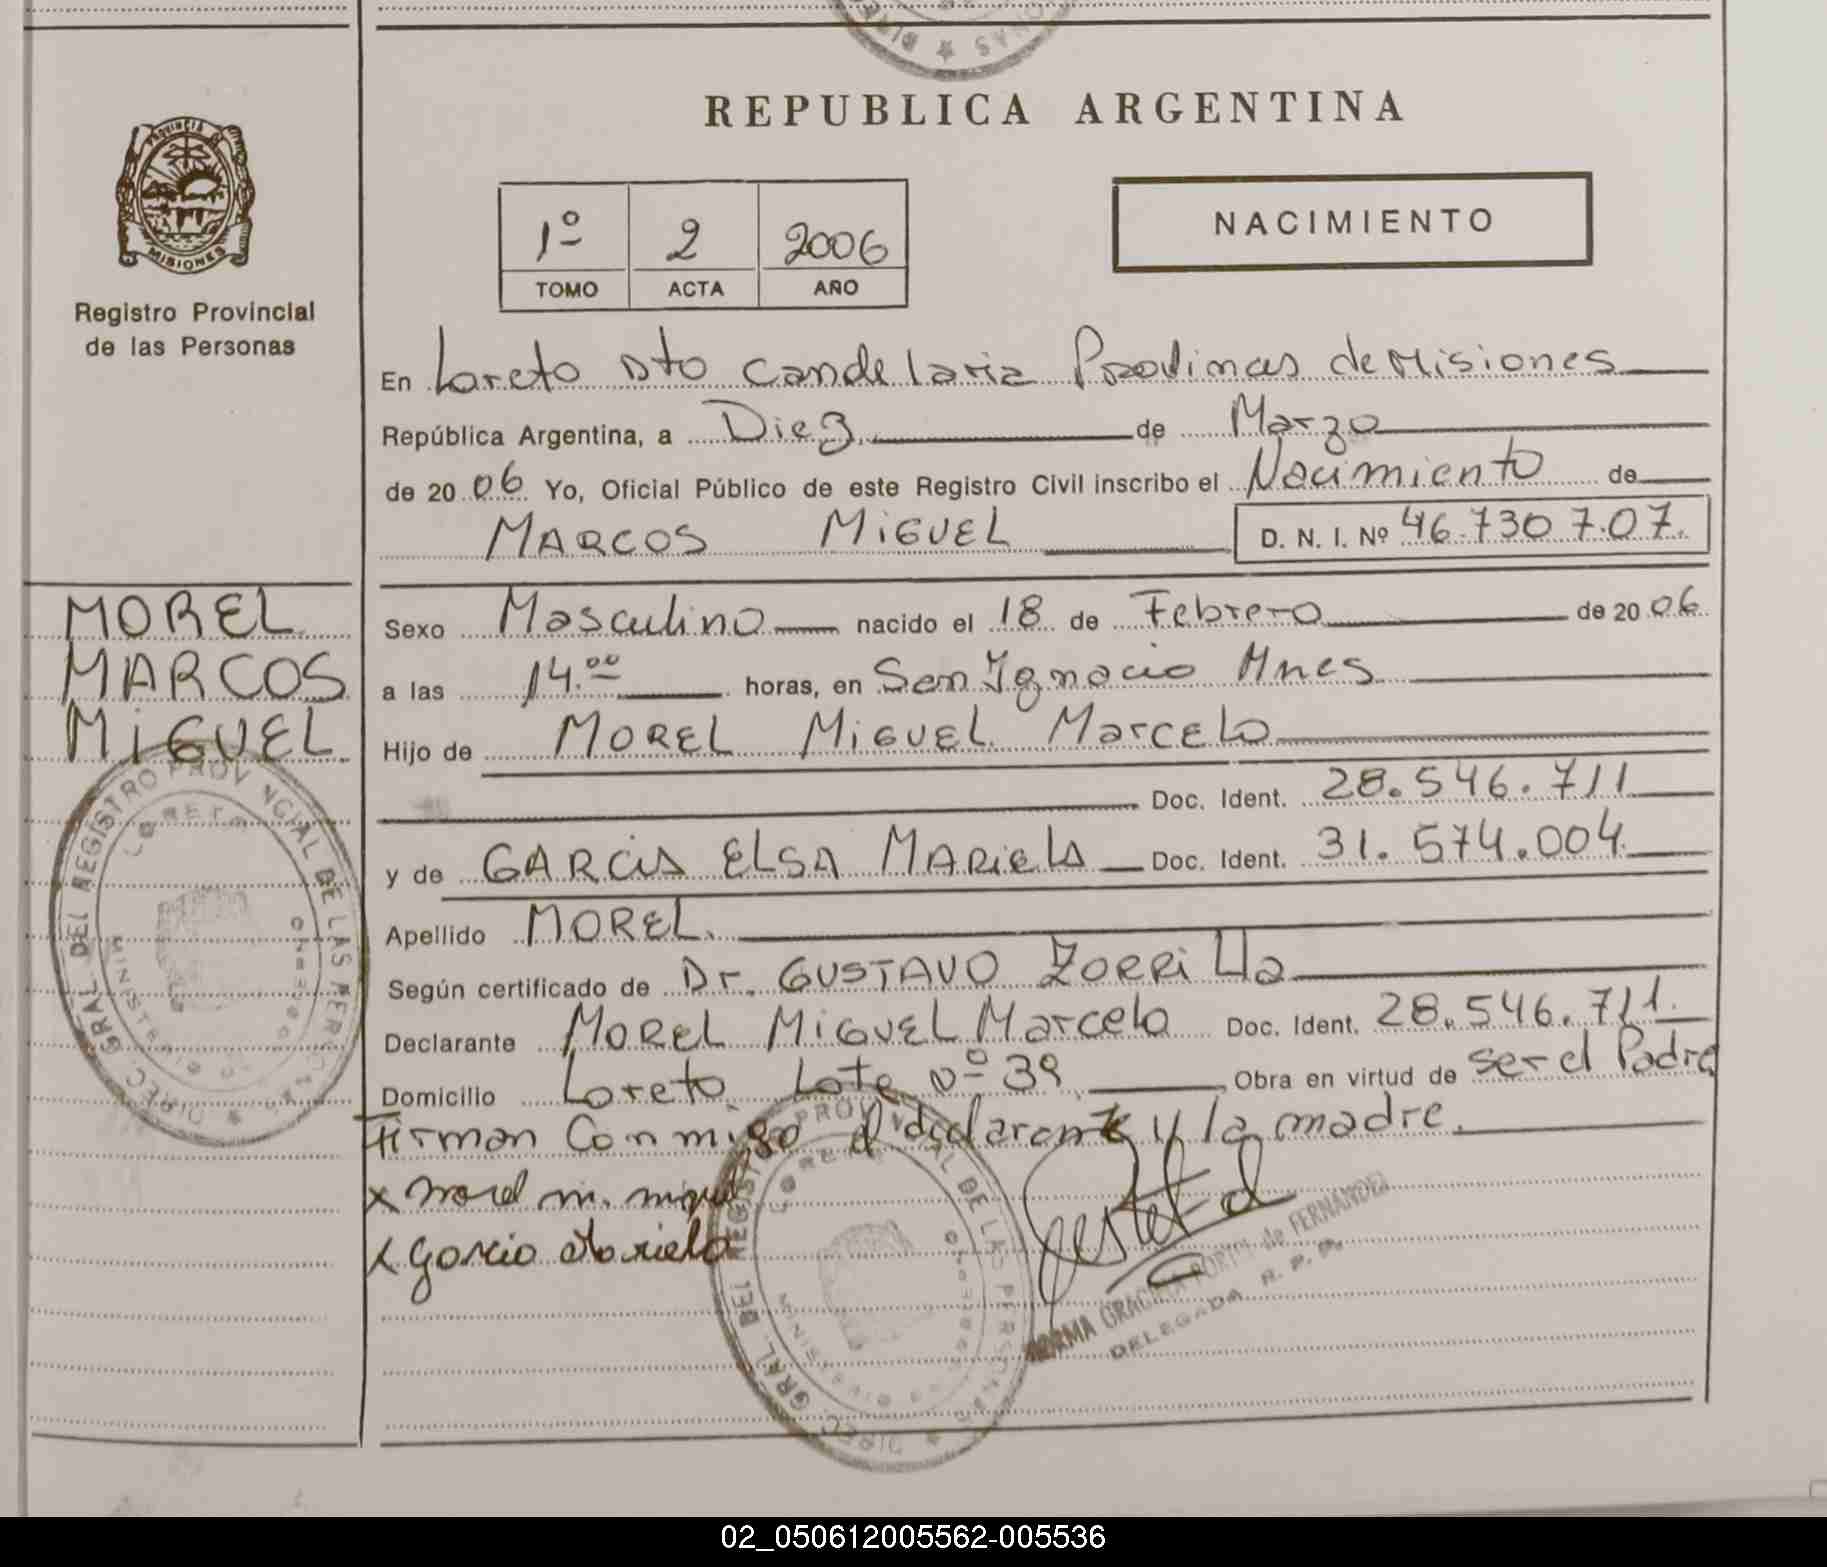 REPUBLICA ARGENTINA
PROVINCIA
MISIONES
Registro Provincial
de las Personas
1º 2 2006
TOMO ACTA AÑO
NACIMIENTO
En Loreto Dto Candelaria Provincias de Misiones
República Argentina, a Diez de Marzo
de 2006 Yo, Oficial Público de este Registro Civil inscribo el Nacimiento de
MARCOS MIGUEL D. N. I. Nº 46.730 7.07.
MOREL
MARCOS
MIGUEL
Sexo Masculino nacido el 18 de Febrero de 2006
a las 14.00 horas, en San Ignacio Mnes
Hijo de MOREL MIGUEL Marcelo
Doc. Ident. 28.546.711
y de GARCIA ELSA MARIELA Doc. Ident. 31.574.004
Apellido MOREL.
Según certificado de Dr. GUSTAVO ZORRILLa
Declarante MOREL MIGUEL Marcelo Doc. Ident. 28.546.711.
Domicilio Loreto Lote Nº 39 Obra en virtud de ser el Padre
Firman Conmigo el declarante y la madre.
x morel m. miguel
x Garcia Mariela
DIREC. GRAL. DEL REGISTRO PROVINCIAL DE LAS PERSONAS
LORETO
MINISTERIO DE GOBIERNO
DIREC. GRAL. DEL REGISTRO PROVINCIAL DE LAS PERSONAS
LORETO
MINISTERIO DE GOBIERNO
NORMA GRACIELA de FERNANDEZ
DELEGADA R. P. P.
02_050612005562-005536